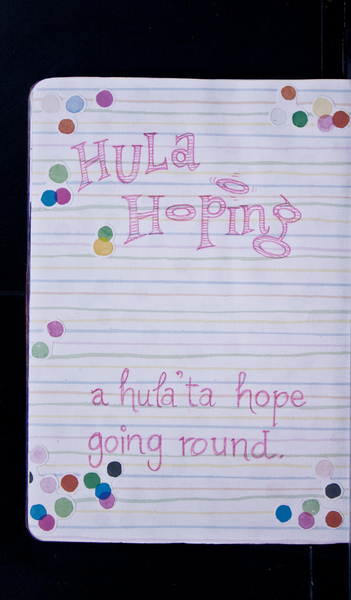 HULa
HOPing
a hula'ta hope
going round.